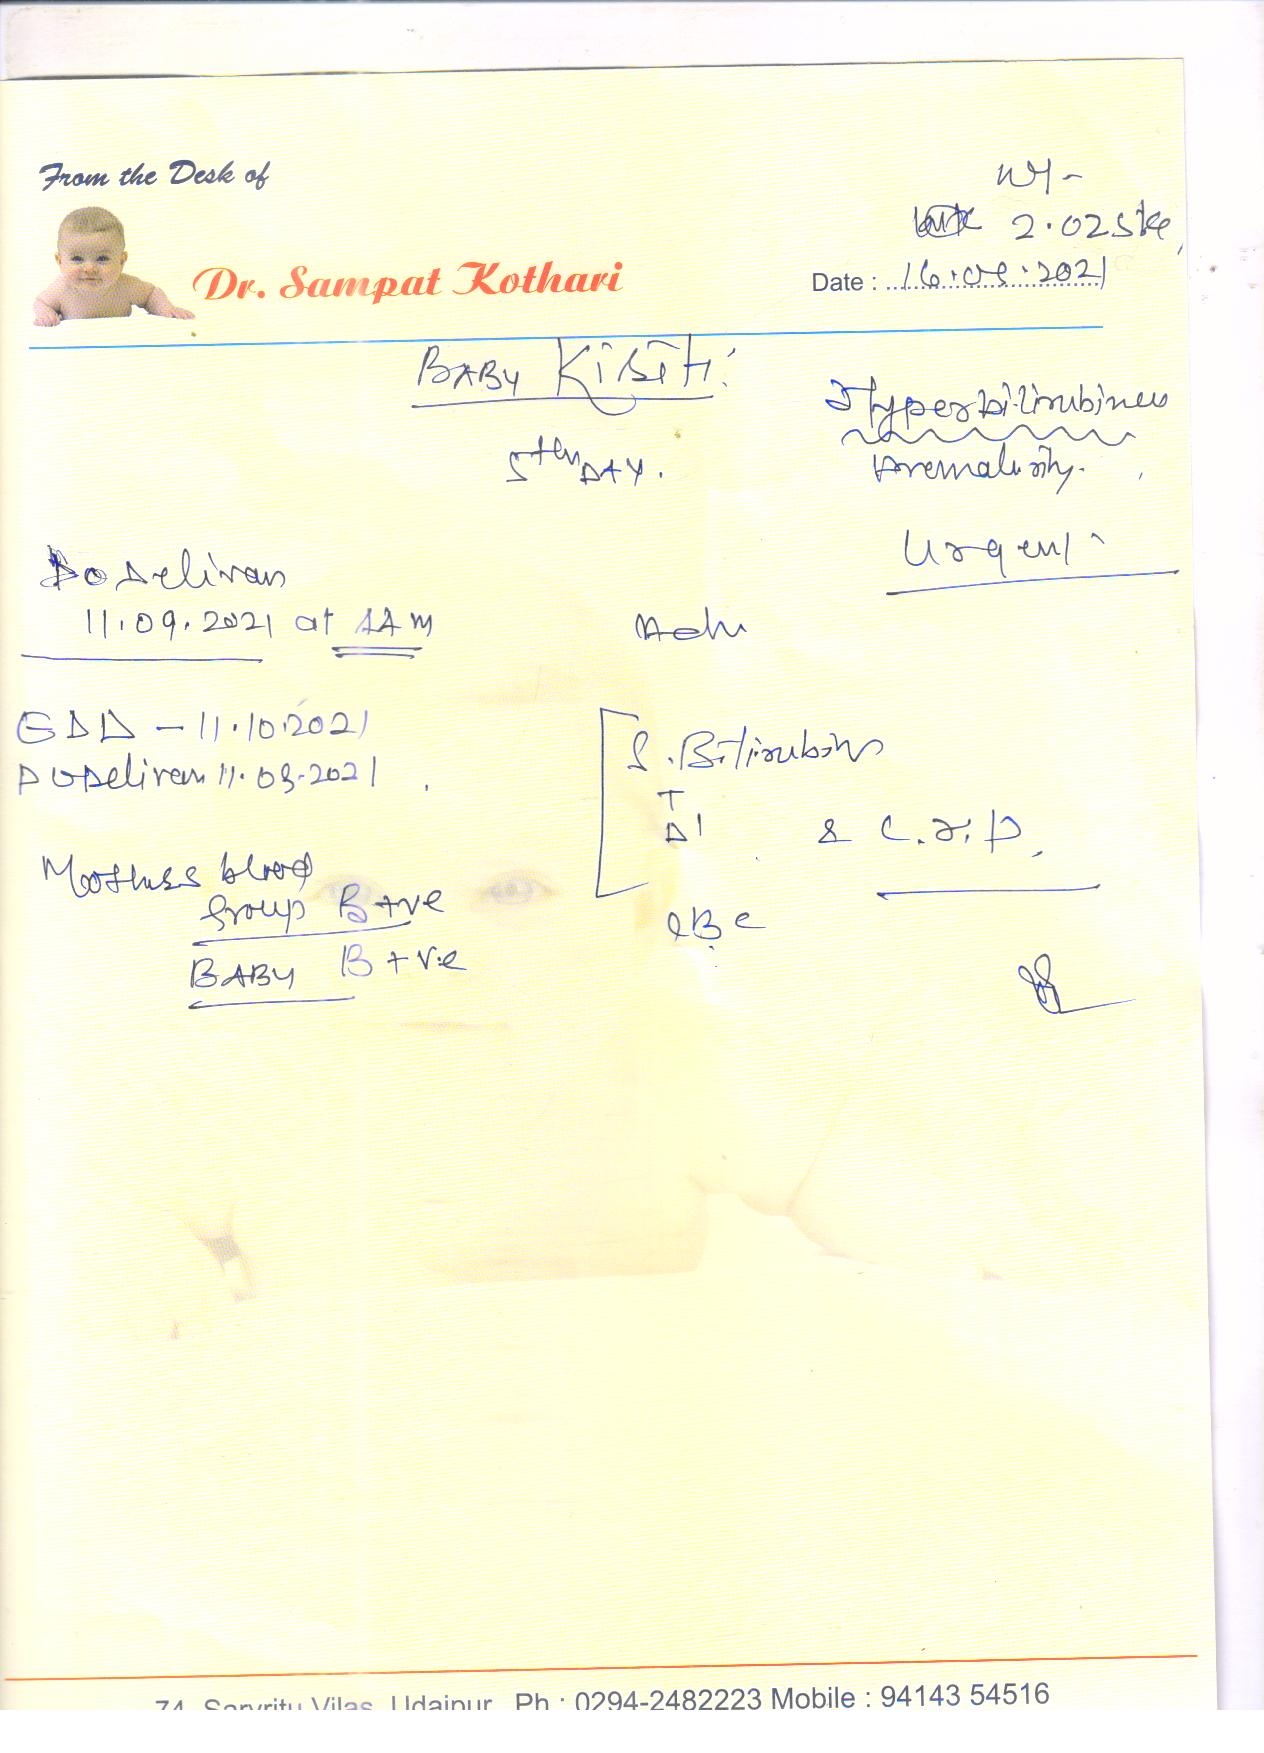 From the Desk of
Dr. Sampat Kothari
Wt -
2.025 kg,
Date : 16.09.2021
BABY
5th DAY.
Hyperbilirubinem
Prematurity.
Urgent
Do Delivery
11.09.2021 at
Adv
EDD - 11.10.2021
DoDelivery 11.09.2021
Mothers blood
Group B+ve
BABY B+ve
S. Bilirubin
T
D I
& C.R.P.
CBC
74, Sarvritu Vilas, Udaipur Ph : 0294-2482223 Mobile : 94143 54516